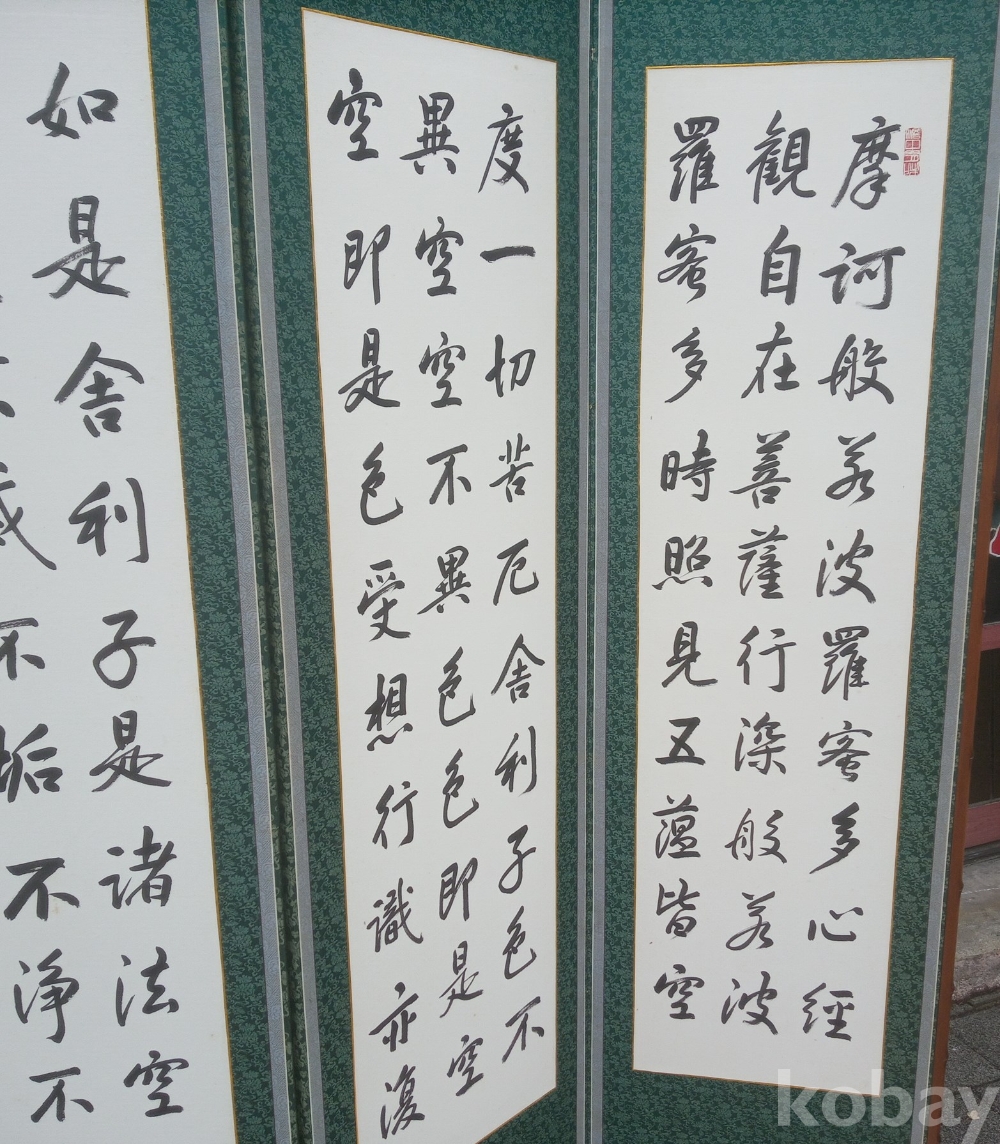 摩訶般若波羅蜜多心經
觀自在菩薩行深般若波
羅蜜多時照見五蘊皆空
度一切苦厄舍利子色不
異空空不異色色即是空
空即是色受想行識亦復
如是舍利子是諸法空
不垢不淨不
kobay